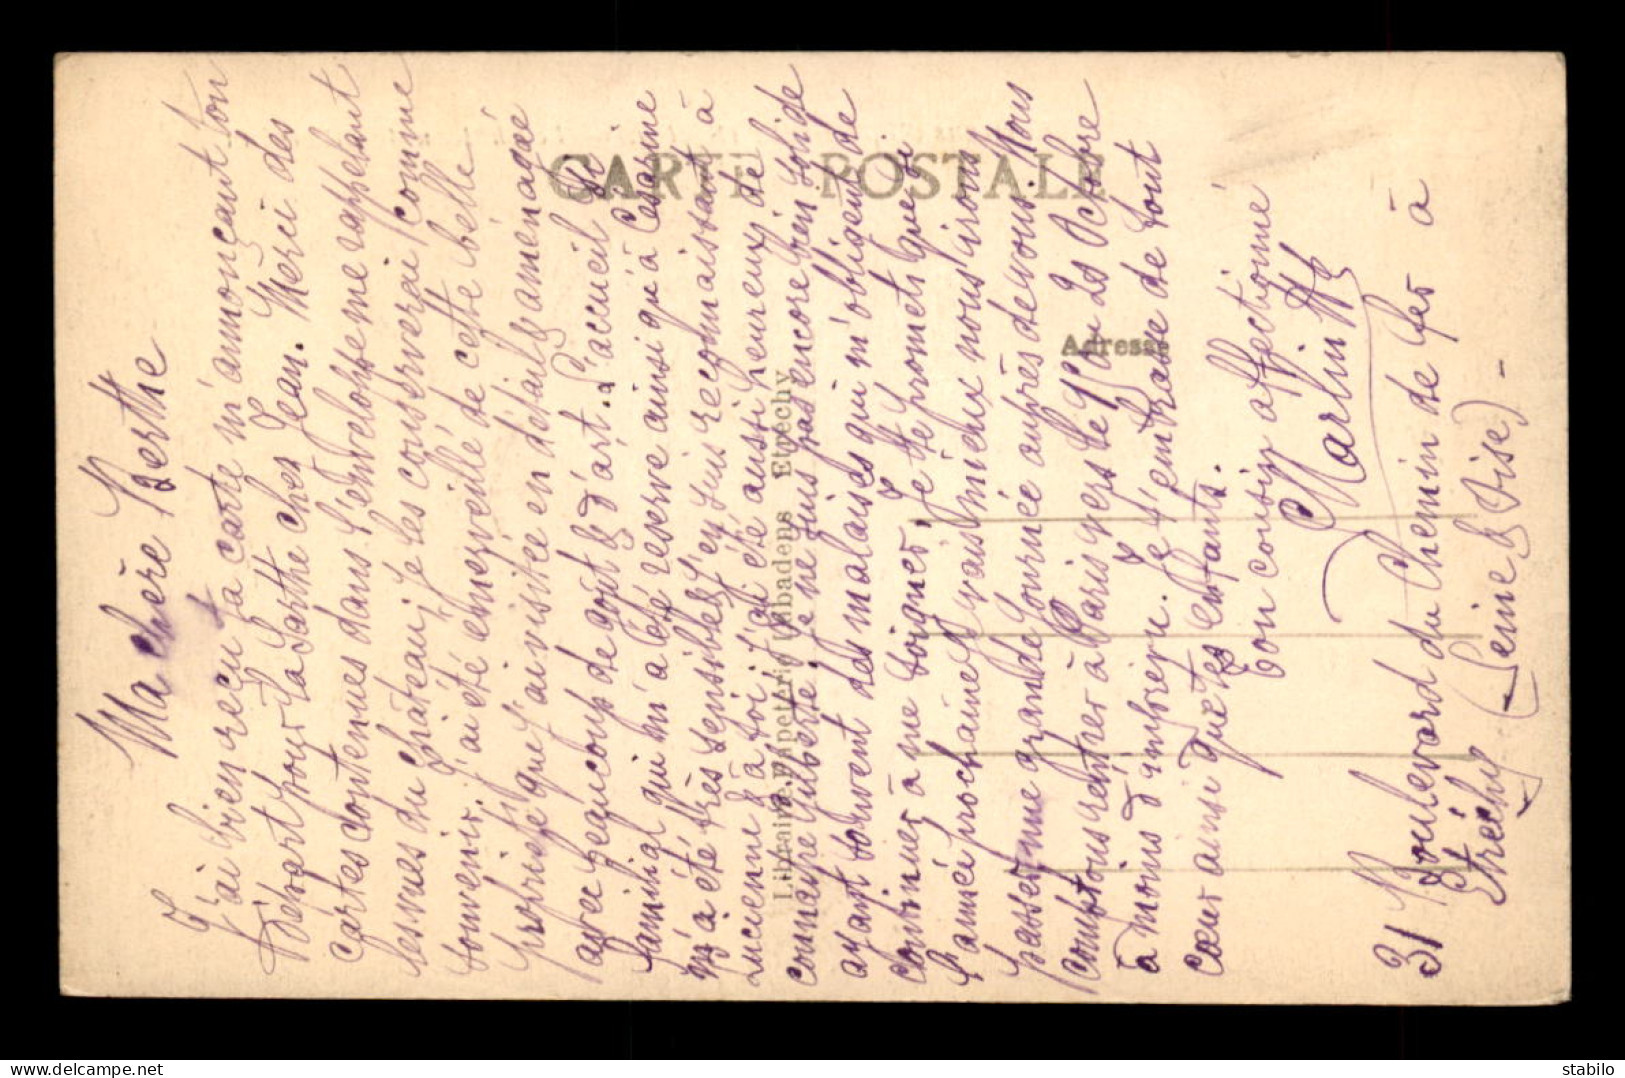 Ma chère Berthe
J'ai bien reçu ta carte m'annonçant ton
départ pour la Sarthe chez Jean. Merci des
cartes contenues dans l'enveloppe me rappelant
les vues du château, je les conserverai comme
souvenir. J'ai été émerveillé de cette belle
propriété que j'ai visitée en détail, aménagée
avec beaucoup de goût & d'art. L'accueil si
familial qui m'a été réservé ainsi qu'à Césarine
m'a été très sensible, j'en suis reconnaissant à
Lucienne & à toi, j'ai été aussi heureux de
connaître Gilberte, je ne suis pas encore bien solide
ayant souvent des malaises qui m'obligent de
continuer à me soigner. Je te promets que si
l'année prochaine je vais mieux nous irons
passer une grande journée auprès de vous. Nous
comptons rentrer à Paris vers le 15 ou 20 Octobre
à moins d'imprévu. Je t'embrasse de tout
cœur ainsi que tes enfants.
Ton cousin affectionné
Martin
31 Boulevard du Chemin de fer à
Etréchy (Seine & Oise) -
CARTE POSTALE
Adresse
Librairie Papeterie Etréchy
stabilo